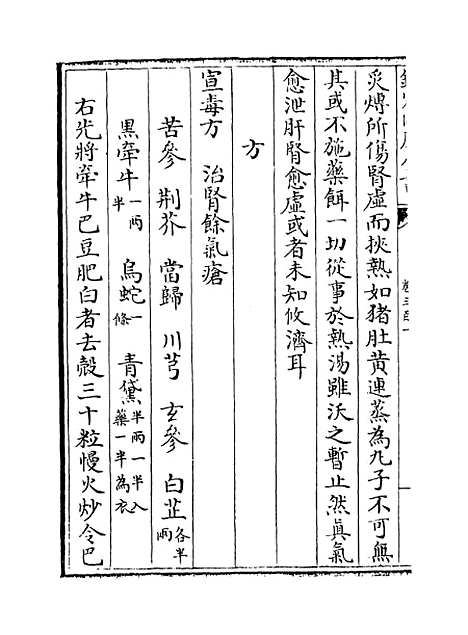 炙煿所傷腎虛而挾熱如猪肚黄連蒸為丸子不可無
其或不施藥餌一切從事於熱湯雖沃之暫止然真氣
愈泄肝腎愈虛或者未知攸濟耳
方
宣毒方 治腎餘氣瘡
苦參 荆芥 當歸 川芎 玄參 白芷各半兩
黑牽牛一兩半 烏蛇一條 青黛半兩一半入藥一半為衣
右先將牽牛巴豆肥白者去殼三十粒慢火炒令巴